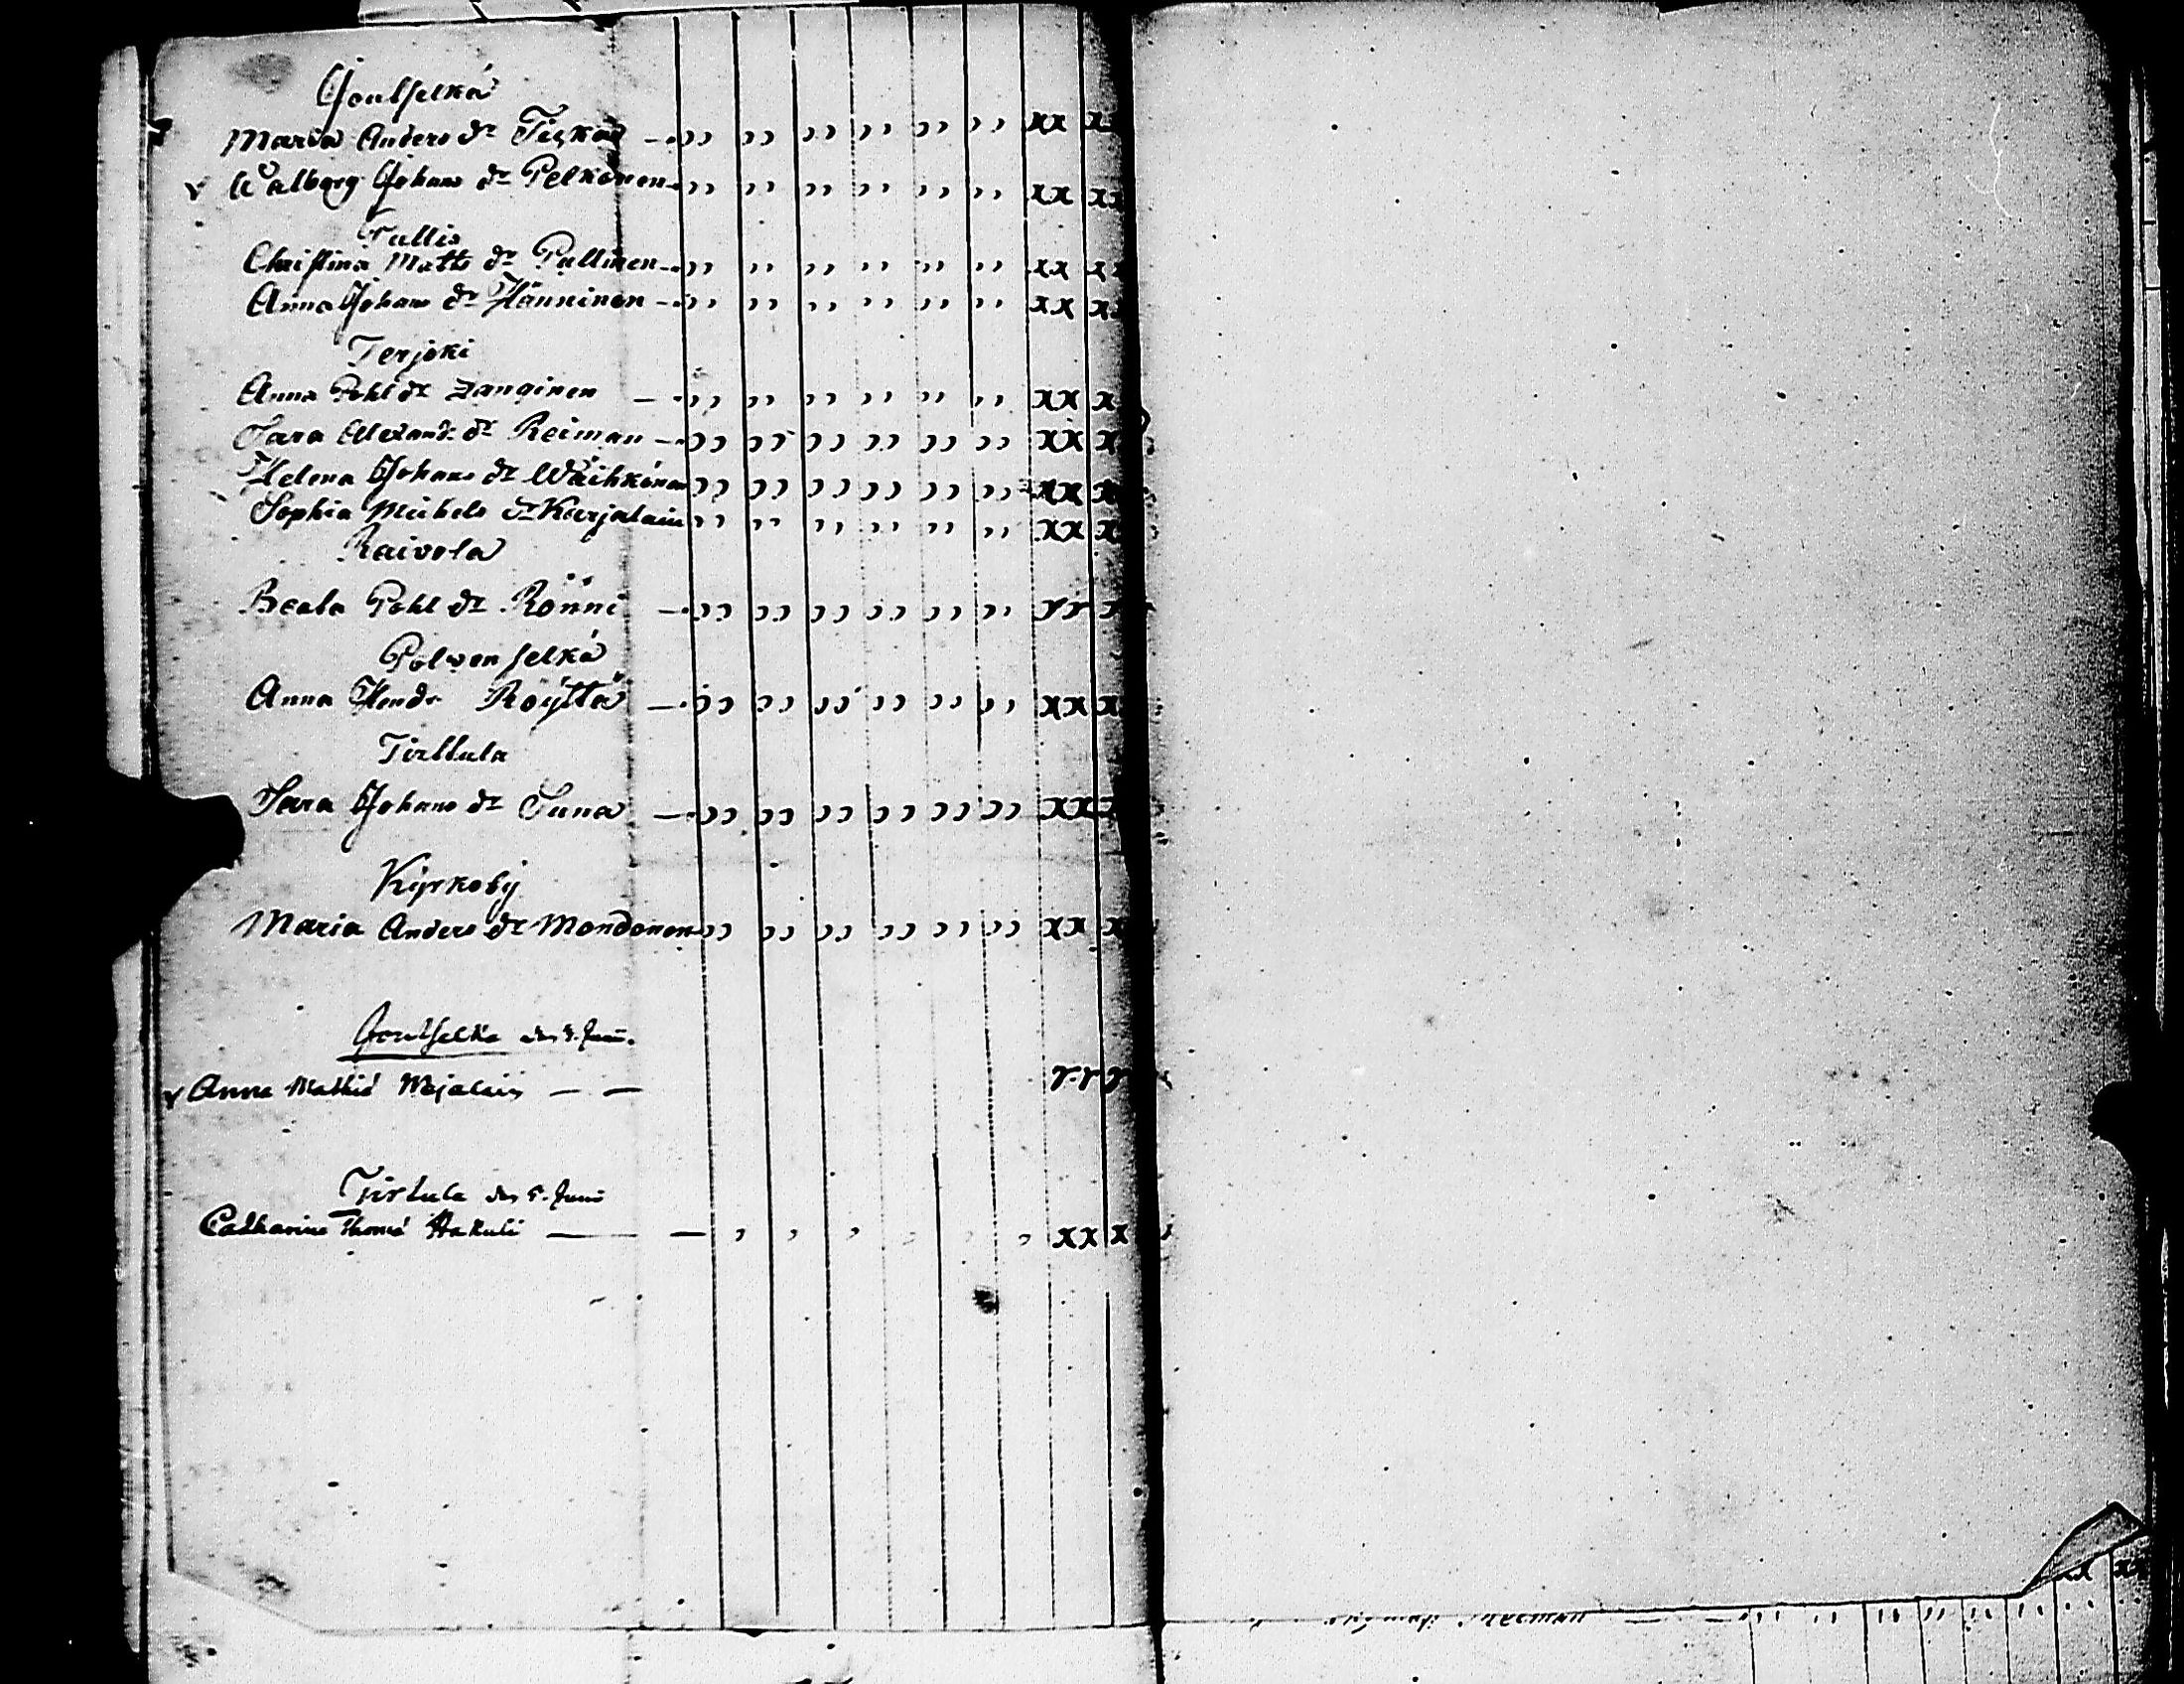 Joutselkä
Maria Anders dr — ,, ,, ,, ,, ,, ,, xx x
v Walborg Johans dr Pelkonen ,, ,, ,, ,, ,, ,, xx xx
Tullis
Christina Matts dr Pullinen ,, ,, ,, ,, ,, ,, xx xx
Anna Johans dr Hänninen ,, ,, ,, ,, ,, ,, xx x
Terjoki
Anna Pohl dr Zanginen — ,, ,, ,, ,, ,, ,, xx x
Sara Alexand. dr Reiman — ,, ,, ,, ,, ,, ,, xx x
Helena Johans dr ,, ,, ,, ,, ,, ,, xx x
Sophia Michels dr Karjalain ,, ,, ,, ,, ,, ,, xx x
Raivola
Beata Pohl dr Rönni — ,, ,, ,, ,, ,, ,, rr r
Polvenselkä
Anna Hendr Röyttä — ,, ,, ,, ,, ,, ,, xx x
Tirttula
Sara Johans dr Suna — ,, ,, ,, ,, ,, ,, xx x
Kyrkoby
Maria Anders dr Mondonen ,, ,, ,, ,, ,, ,, xx x
Joutselkä den Junii.
v Anna Mathið — — rr r
Tirtula den 5. Junii
Catharina Thomæ Hakuli — — , , , , , , xx x